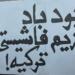 بود باد
ژیم فاشیستی
ترکیه!